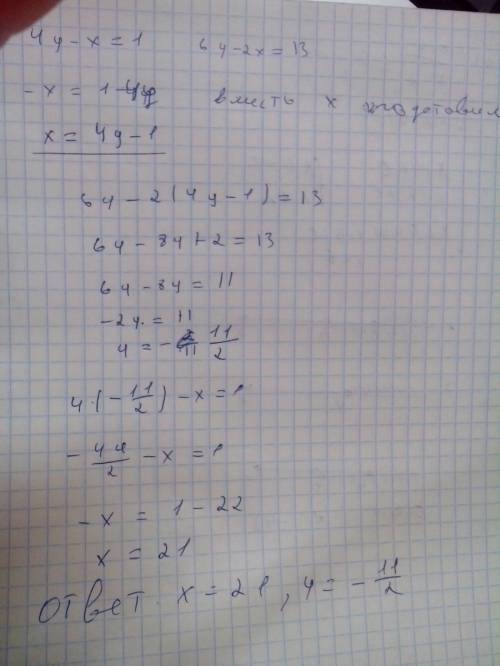 4y-x=1 6y-2x=13
-x = 1-4y вместь x подставим
x = 4y-1
6y-2(4y-1)=13
6y-8y+2=13
6y-8y=11
-2y=11
y=-11/2
4·(-11/2)-x=1
-44/2-x=1
-x = 1-22
x = 21
Ответ. x=21, y=-11/2